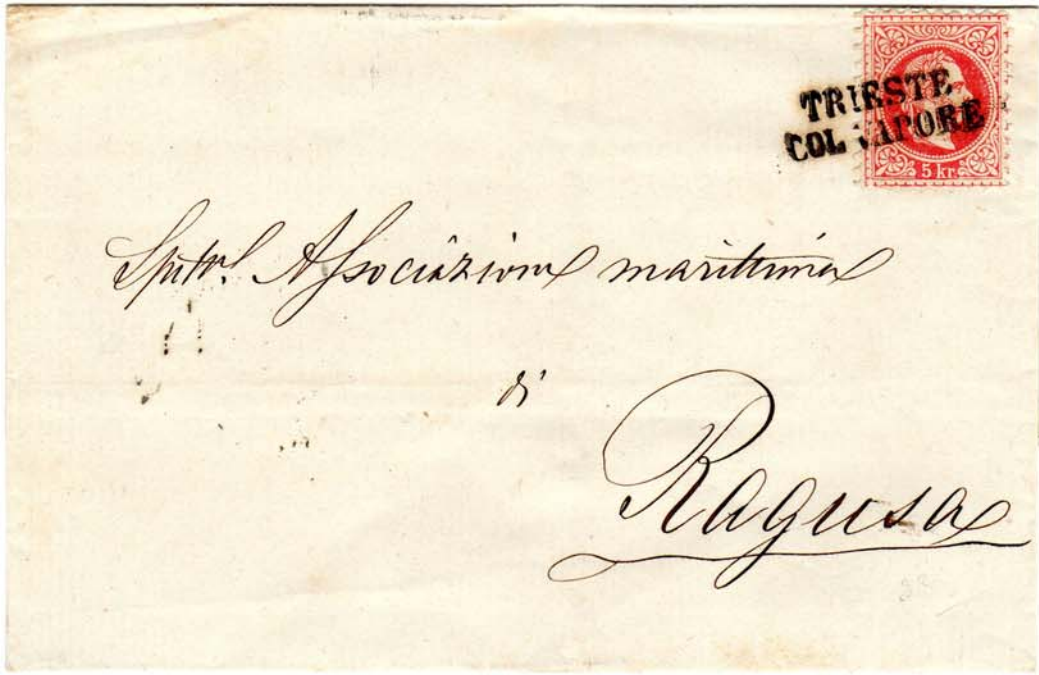 TRIESTE
COL VAPORE
5 kr.
Spett. Associazione marittima
di
Ragusa